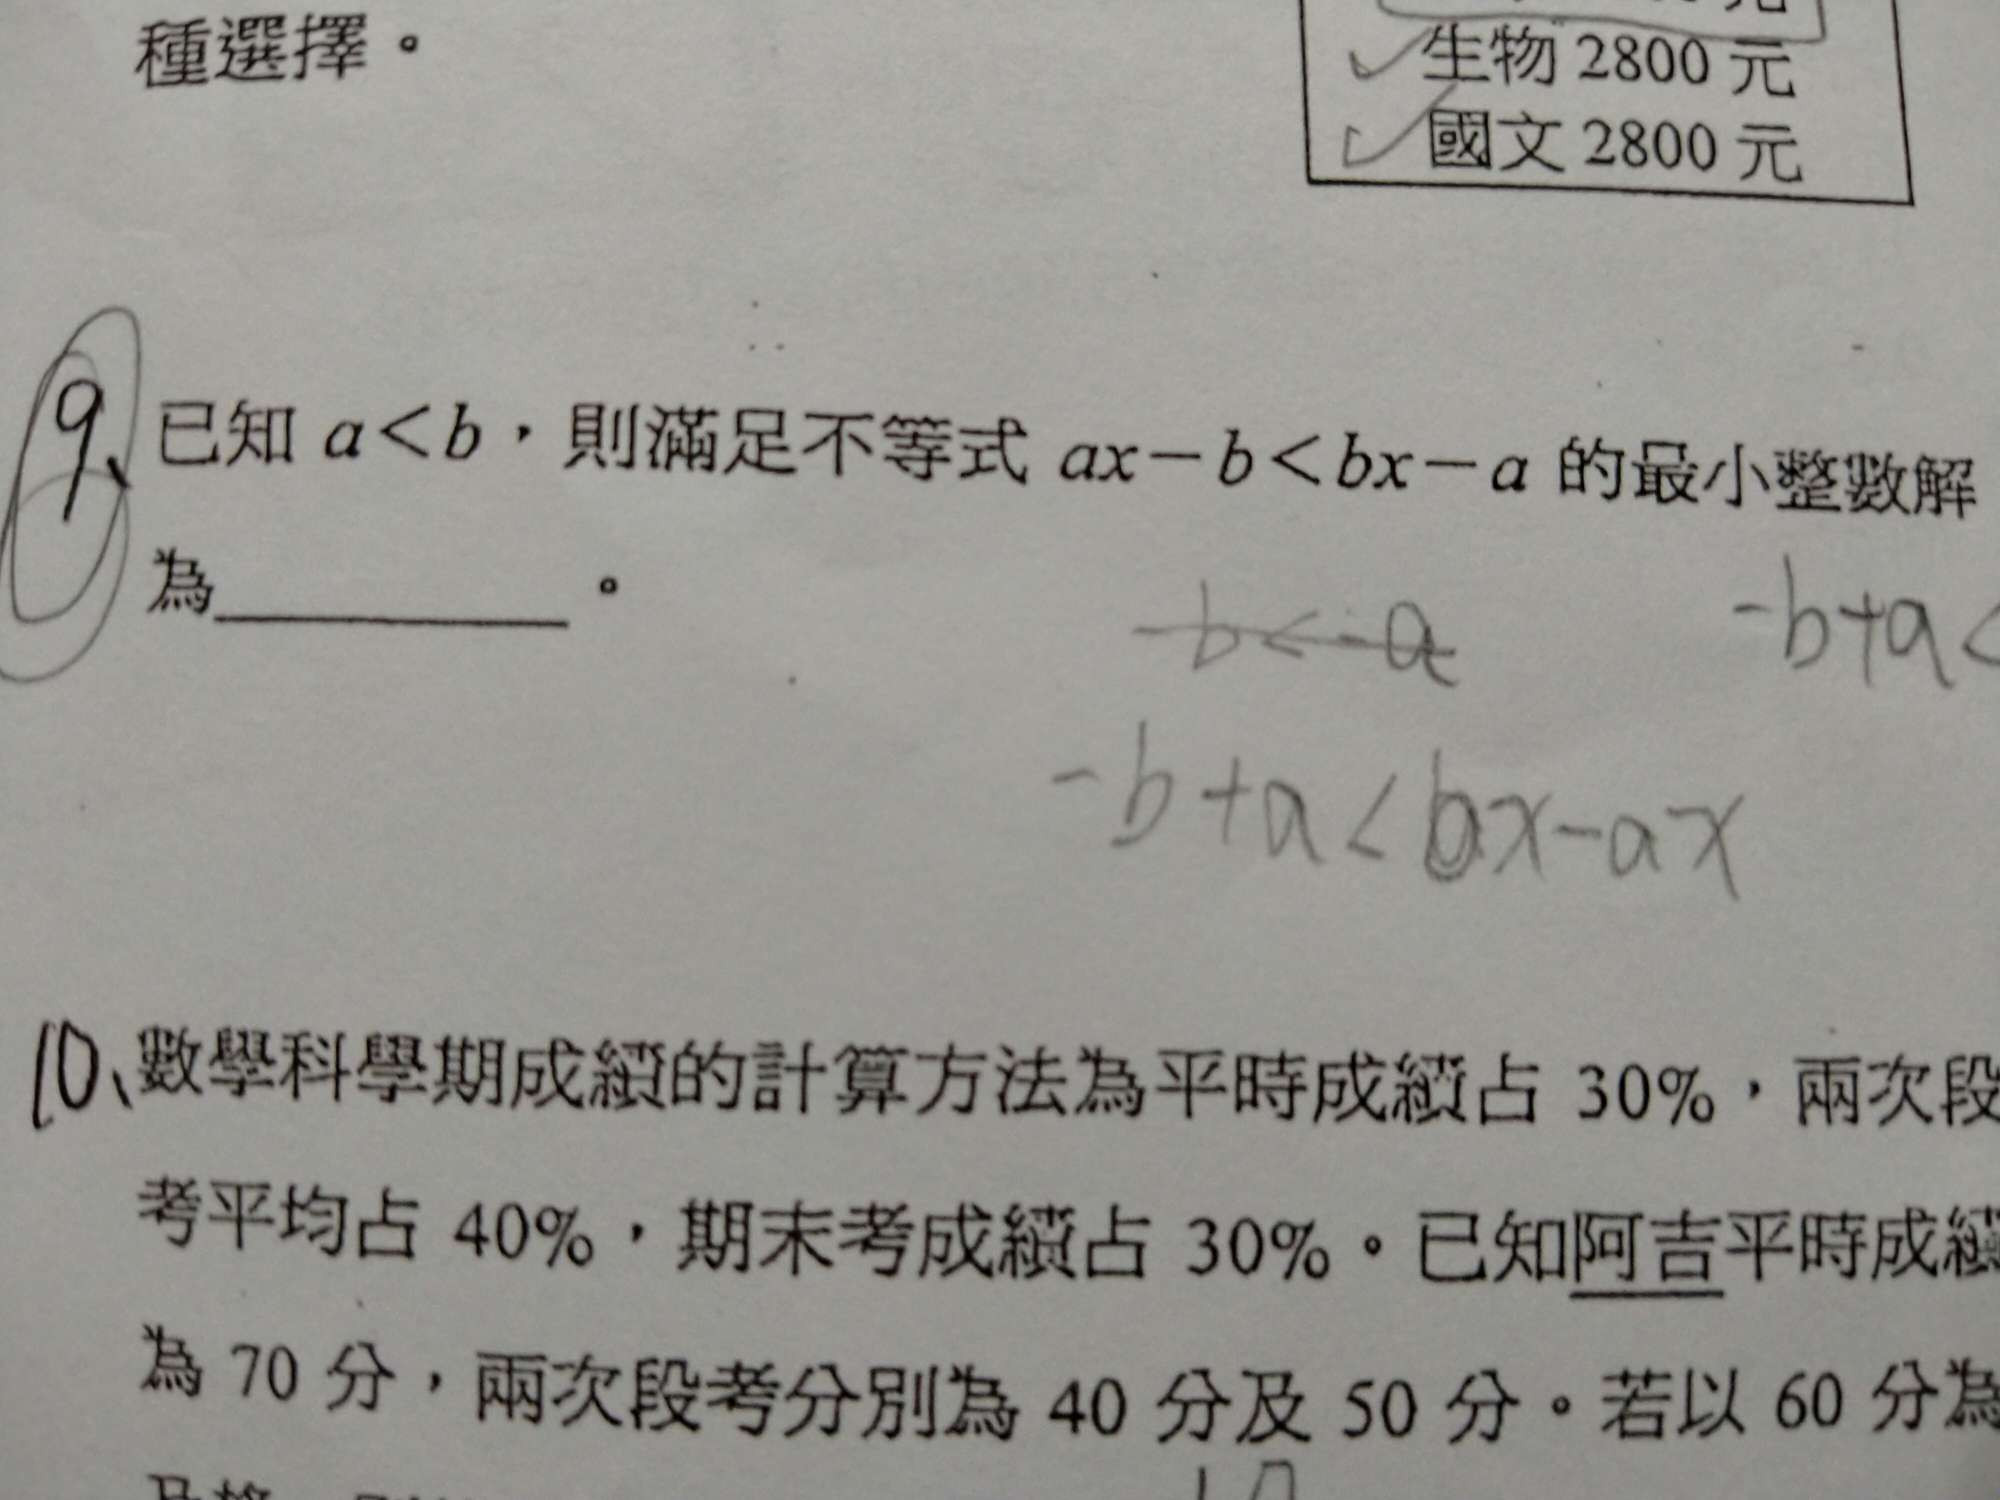 種選擇。
生物 2800 元
國文 2800 元
9、已知 a<b，則滿足不等式 ax-b<bx-a 的最小整數解
為__________。
-b<-a
-b+a<
-b+a<bx-ax
10、數學科學期成績的計算方法為平時成績占 30%，兩次段
考平均占 40%，期末考成績占 30%。已知阿吉平時成績
為 70 分，兩次段考分別為 40 分及 50 分。若以 60 分為